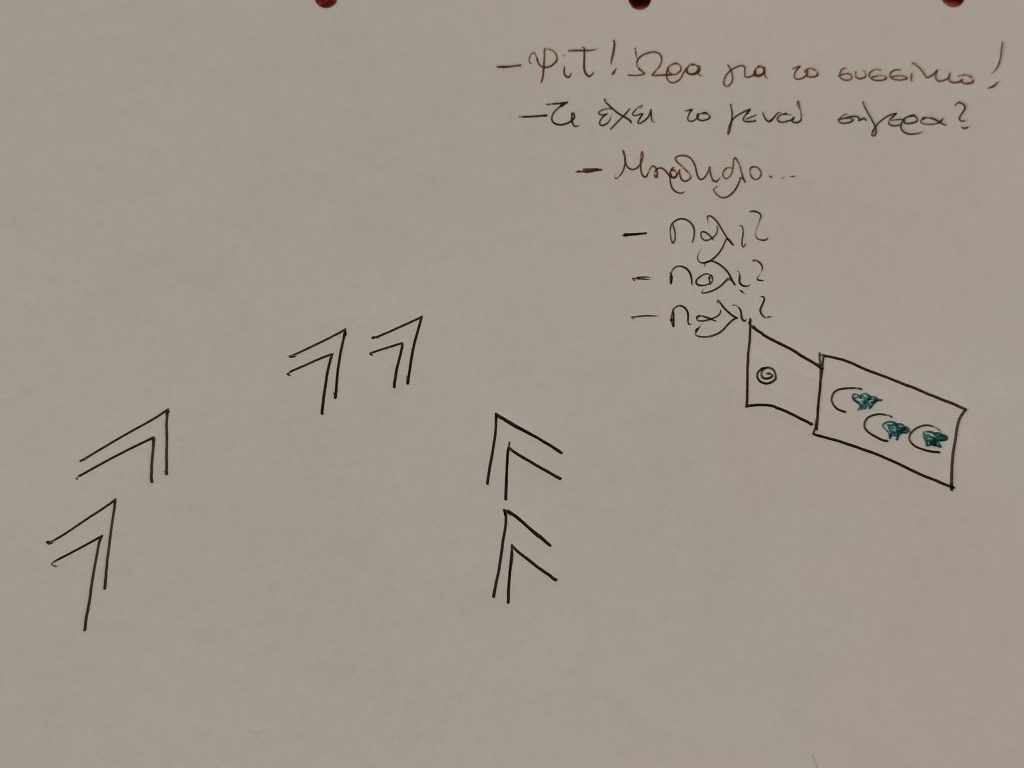 - Ψιτ! Ώρα για το συσσίτιο!
- Τι έχει το μενού σήμερα?
- Μπρόκολο...
- Πάλι?
- Πάλι?
- Πάλι?